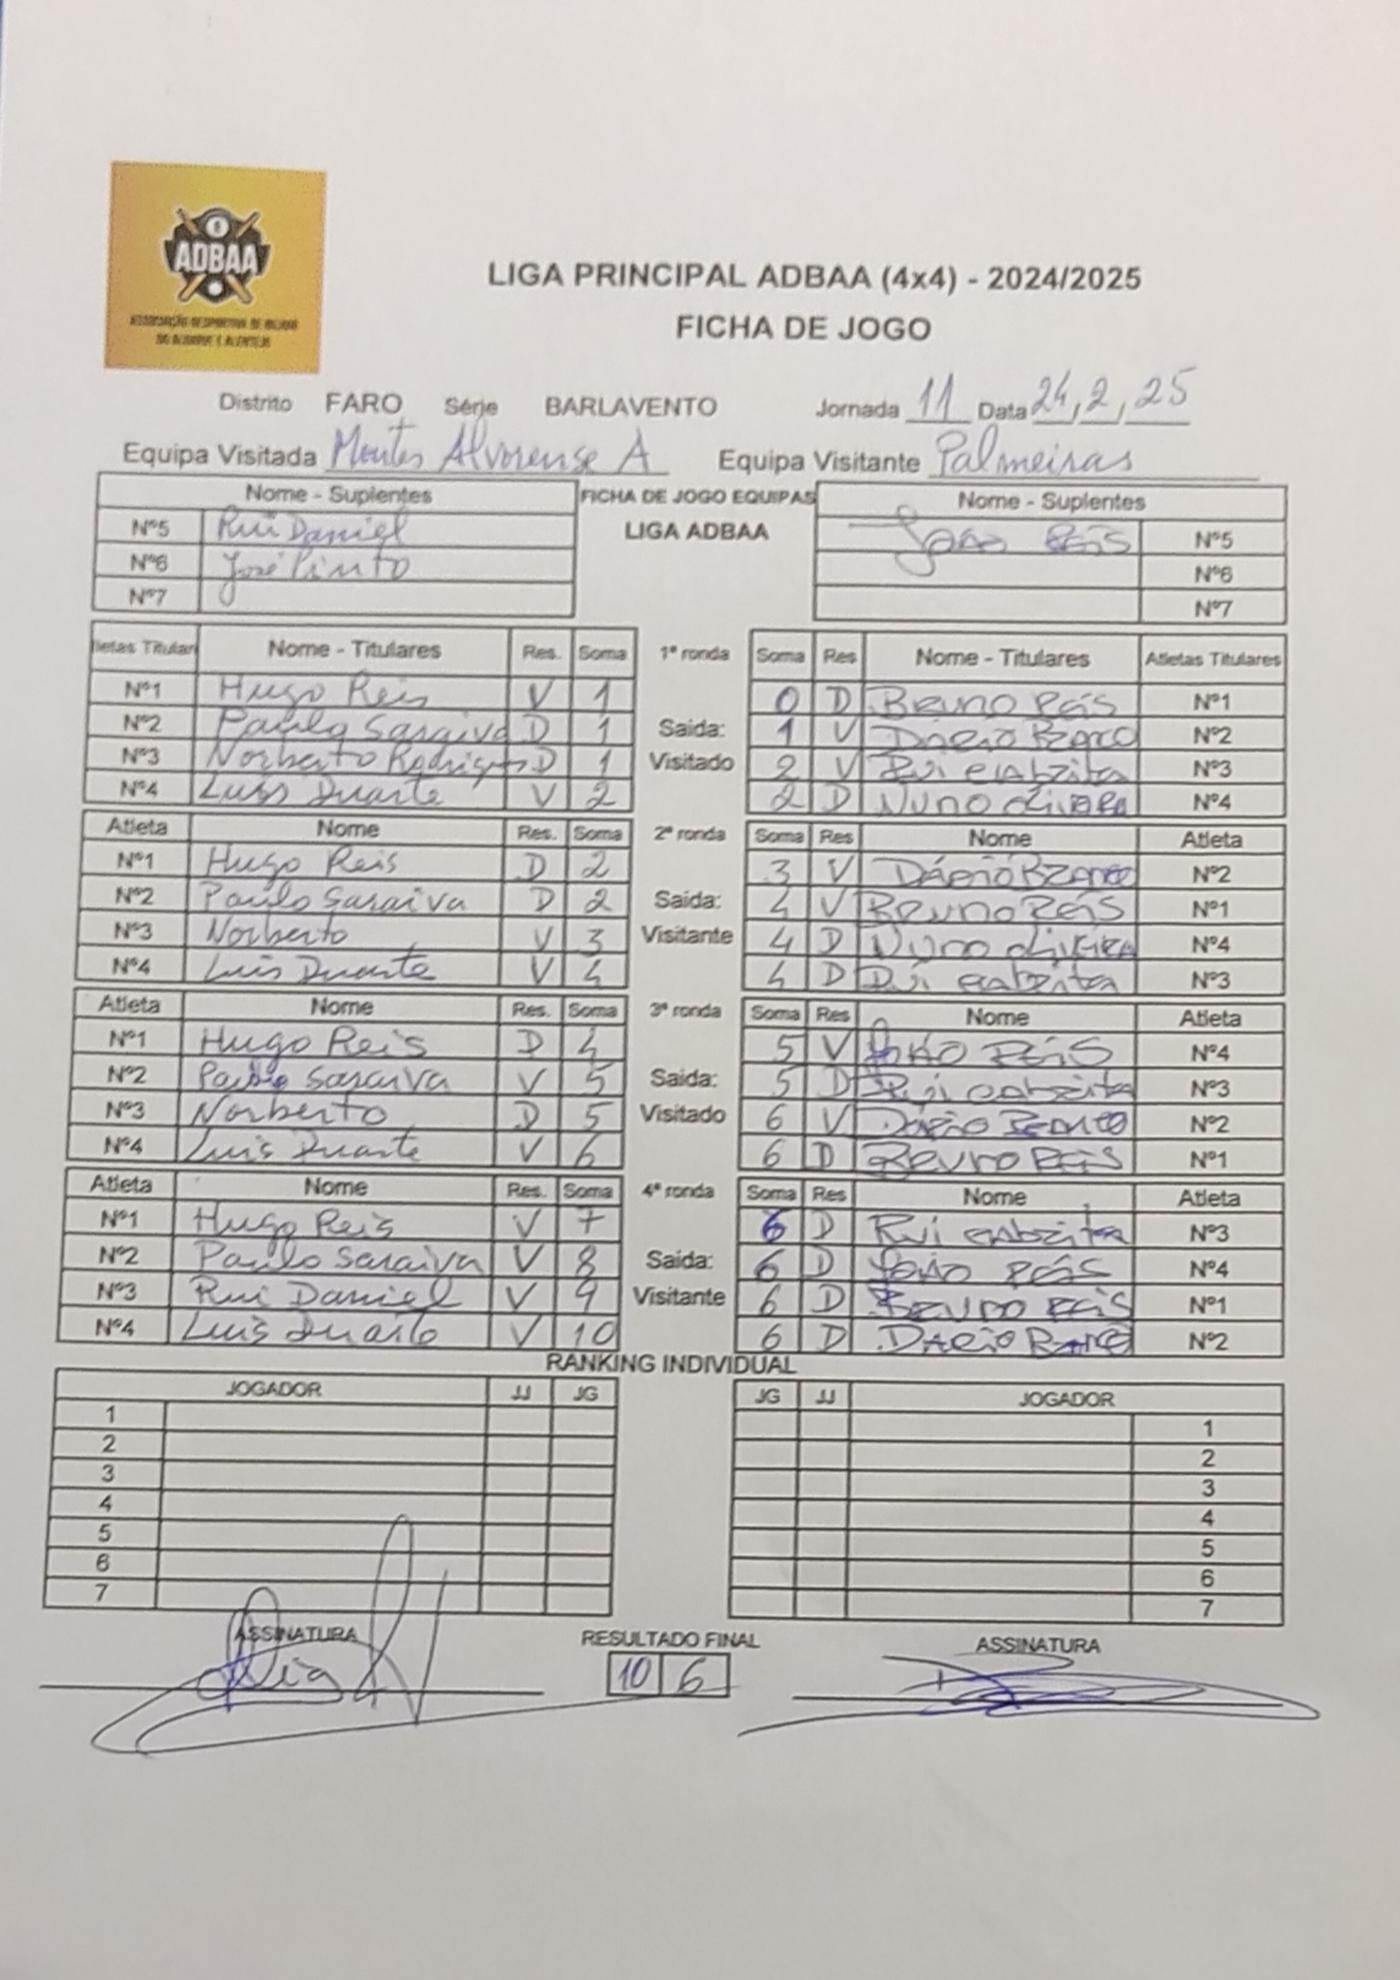 ADBAA
ASSOCIAÇÃO DESPORTIVA DE BILHAR
DO ALGARVE E ALENTEJO
LIGA PRINCIPAL ADBAA (4x4) - 2024/2025
FICHA DE JOGO
Distrito FARO Série BARLAVENTO Jornada 11 Data 24,2,25
Equipa Visitada Montes Alvorense A Equipa Visitante Palmeiras
Nome - Suplentes FICHA DE JOGO EQUIPAS Nome - Suplentes
Nº5 Rui Daniel LIGA ADBAA João Reis Nº5
Nº6 José Pinto Nº6
Nº7 Nº7
letas Titular Nome - Titulares Res. Soma 1ª ronda Soma Res Nome - Titulares Atletas Titulares
Nº1 Hugo Reis V 1 0 D Bruno Reis Nº1
Nº2 Paulo Saraiva D 1 Saida: 1 V Dário Nº2
Nº3 Norberto Rodrigues D 1 Visitado 2 V Rui Nº3
Nº4 Luis Duarte V 2 2 D Nuno Oliveira Nº4
Atleta Nome Res. Soma 2ª ronda Soma Res Nome Atleta
Nº1 Hugo Reis D 2 3 V Dário Nº2
Nº2 Paulo Saraiva D 2 Saida: 4 V Bruno Reis Nº1
Nº3 Norberto V 3 Visitante 4 D Nuno Oliveira Nº4
Nº4 Luis Duarte V 4 4 D Rui Nº3
Atleta Nome Res. Soma 3ª ronda Soma Res Nome Atleta
Nº1 Hugo Reis D 4 5 V João Reis Nº4
Nº2 Paulo Saraiva V 5 Saida: 5 D Rui Nº3
Nº3 Norberto D 5 Visitado 6 V Dário Nº2
Nº4 Luis Duarte V 6 6 D Bruno Reis Nº1
Atleta Nome Res. Soma 4ª ronda Soma Res Nome Atleta
Nº1 Hugo Reis V 7 6 D Rui Nº3
Nº2 Paulo Saraiva V 8 Saida: 6 D João Reis Nº4
Nº3 Rui Daniel V 9 Visitante 6 D Bruno Reis Nº1
Nº4 Luis Duarte V 10 6 D Dário Nº2
RANKING INDIVIDUAL
JOGADOR JJ JG JG JJ JOGADOR
1 1
2 2
3 3
4 4
5 5
6 6
7 7
ASSINATURA RESULTADO FINAL ASSINATURA
10 6